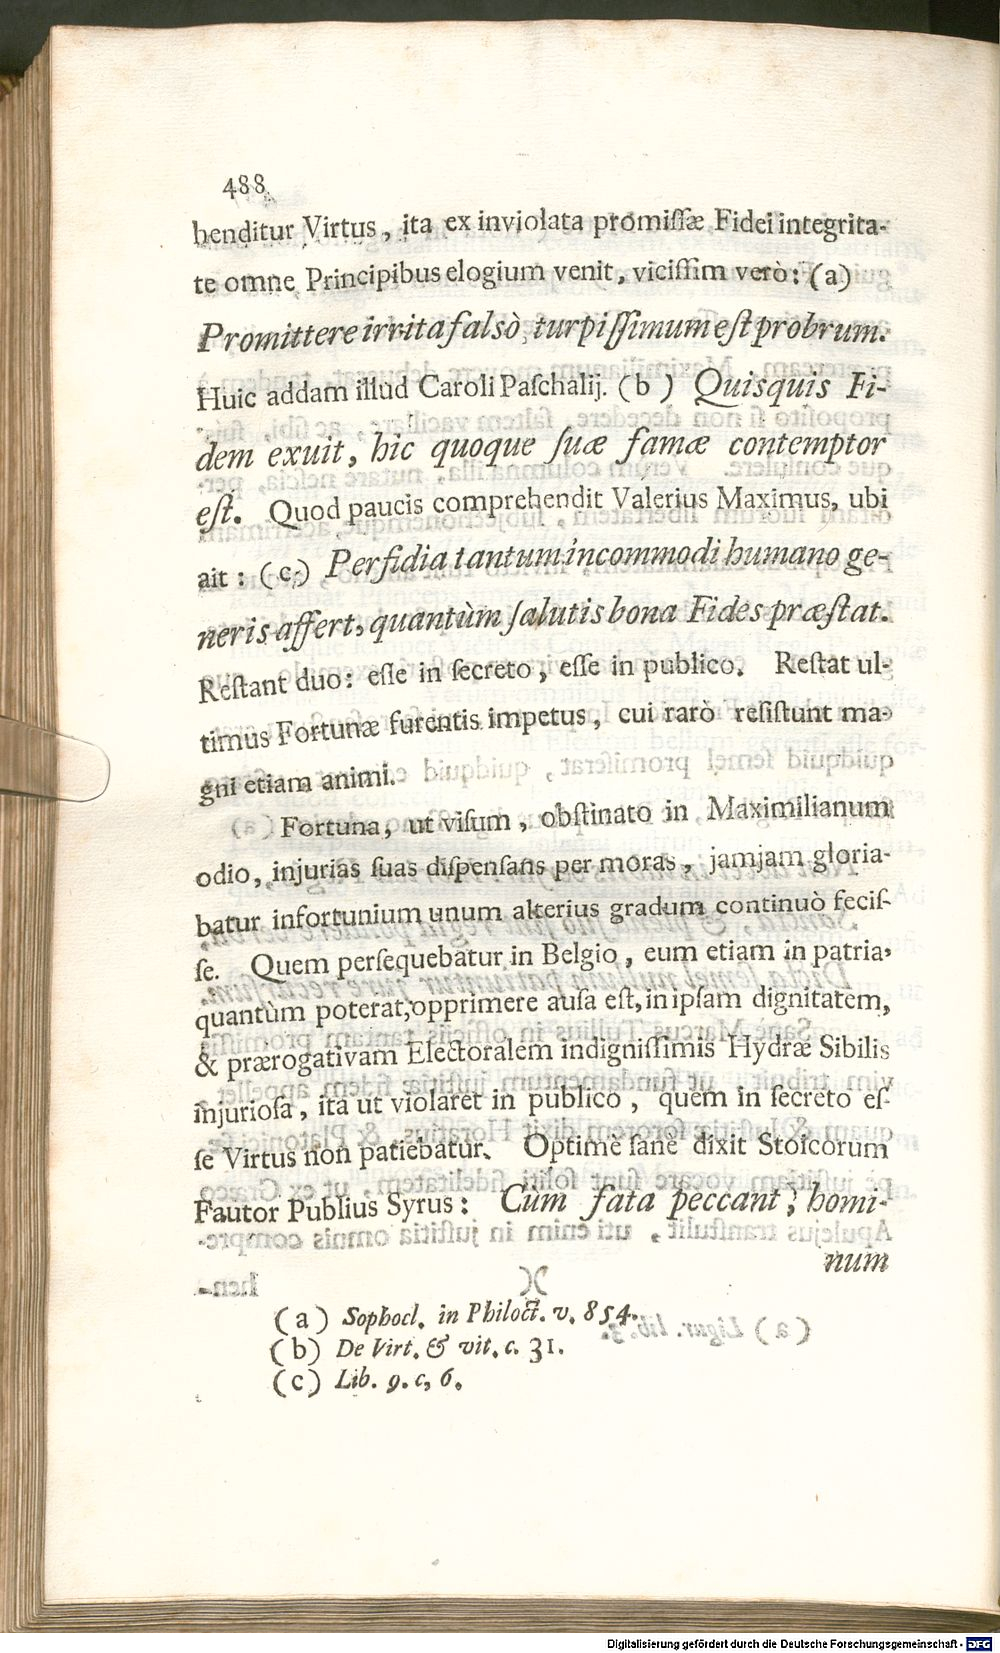 488
henditur Virtus, ita ex inviolata promiſſæ Fidei integrita-
te omne Principibus elogium venit, viciſſim verò: (a)
Promittere irrita falsò, turpiſſimum eſt probrum.
Huic addam illud Caroli Paſchalij. (b) Quisquis Fi-
dem exuit, hic quoque ſuæ famæ contemptor
eſt. Quod paucis comprehendit Valerius Maximus, ubi
ait: (c) Perfidia tantum incommodi humano ge-
neris affert, quantùm ſalutis bona Fides præſtat.
Reſtant duo: eſſe in ſecreto, eſſe in publico. Reſtat ul-
timus Fortunæ furentis impetus, cui rarò reſiſtunt ma-
gni etiam animi.
Fortuna, ut viſum, obſtinato in Maximilianum
odio, injurias ſuas diſpenſans per moras, jamjam gloria-
batur infortunium unum alterius gradum continuò feciſ-
ſe. Quem perſequebatur in Belgio, eum etiam in patria,
quantùm poterat, opprimere auſa eſt, in ipſam dignitatem,
& prærogativam Electoralem indigniſſimis Hydræ Sibilis
injurioſa, ita ut violaret in publico, quem in ſecreto eſ-
ſe Virtus non patiebatur. Optimè ſanè dixit Stoicorum
Fautor Publius Syrus: Cùm fata peccant, homi-
num
(a) Sophocl. in Philoct. v. 854.
(b) De Virt. & vit. c. 31.
(c) Lib. 9. c, 6.
Digitalisierung gefördert durch die Deutsche Forschungsgemeinschaft - DFG